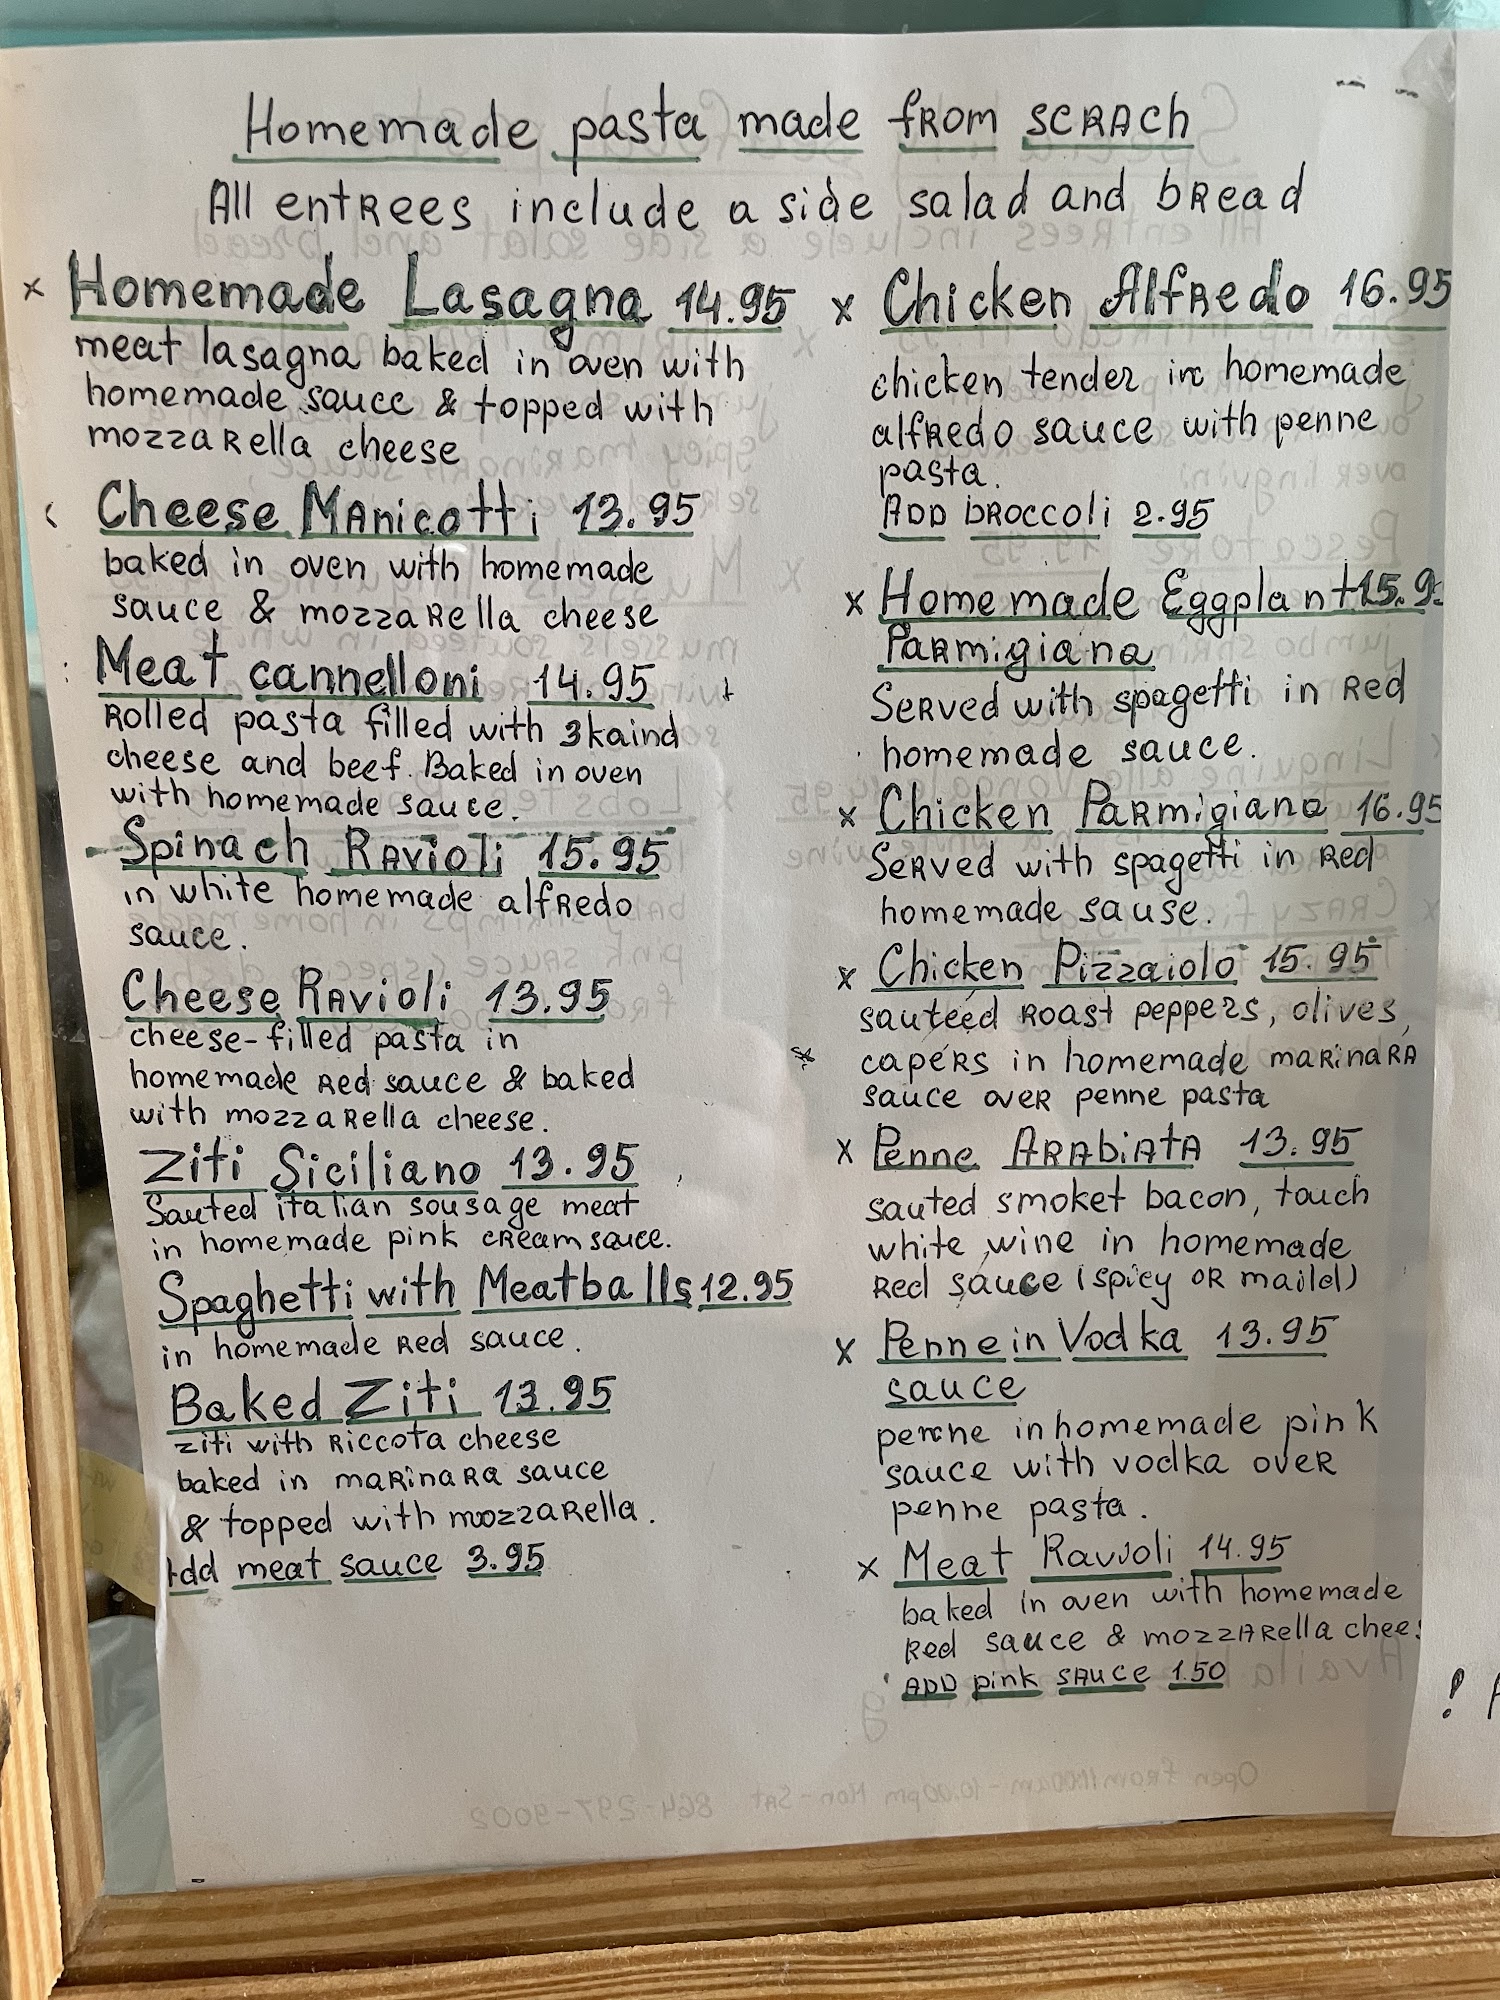 Homemade pasta made from SCRACH
All entrees include a side salad and bread
x Homemade Lasagna 14.95
meat lasagna baked in oven with
homemade sauce & topped with
mozzarella cheese
Cheese Manicotti 13.95
baked in oven with homemade
sauce & mozzarella cheese
Meat cannelloni 14.95
Rolled pasta filled with 3 kaind
cheese and beef. Baked in oven
with homemade sauce.
Spinach Ravioli 15.95
in white homemade alfredo
sauce.
Cheese Ravioli 13.95
cheese-filled pasta in
homemade red sauce & baked
with mozzarella cheese.
Ziti Siciliano 13.95
Sauted italian sousage meat
in homemade pink cream sauce.
Spaghetti with Meatballs 12.95
in homemade red sauce.
Baked Ziti 13.95
ziti with riccota cheese
baked in marinara sauce
& topped with mozzarella.
Add meat sauce 3.95
x Chicken Alfredo 16.95
chicken tender in homemade
alfredo sauce with penne
pasta.
ADD broccoli 2.95
x Homemade Eggplant 15.9
Parmigiana
Served with spagetti in red
homemade sauce.
x Chicken Parmigiana 16.95
Served with spagetti in red
homemade sause.
x Chicken Pizzaiolo 15.95
sauteed roast peppers, olives,
capers in homemade marinara
sauce over penne pasta
x Penne Arabiata 13.95
sauted smoket bacon, touch
white wine in homemade
red sauce (spicy or maild)
x Penne in Vodka 13.95
sauce
penne in homemade pink
sauce with vodka over
penne pasta.
x Meat Ravioli 14.95
baked in oven with homemade
red sauce & mozzarella chees
ADD pink sauce 1.50